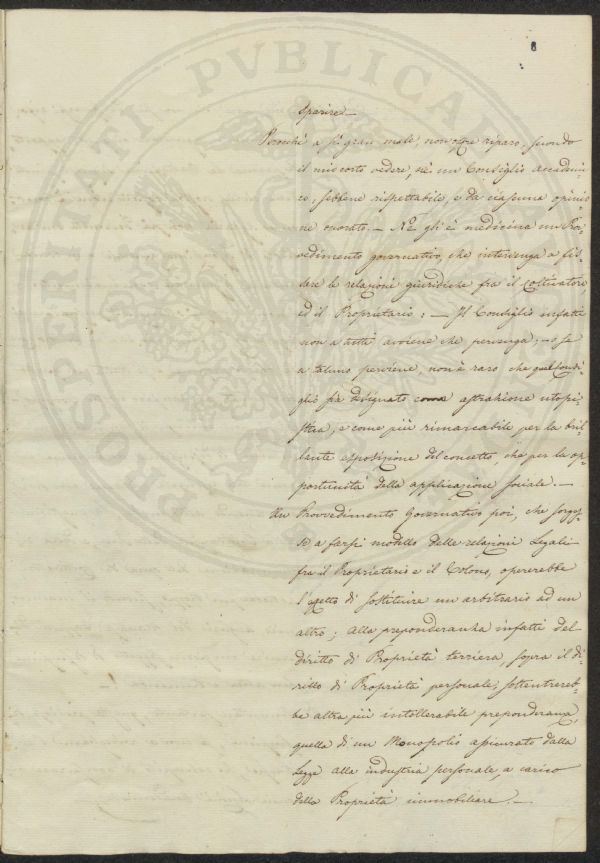 sparire. —
Perochè a sì gran male non offre riparo, secondo
il mio corto vedere, nè un Consiglio accademi-
co, sebbene rispettabile, e da ciascuna opinio-
ne onorato. — Nè gli è medicina un Prov-
vedimento governativo, che intervenga a fis-
sare le relazioni giuridiche fra il Coltivatore
ed il Proprietario: — Il Consiglio infatti
non a tutti avviene che pervenga; e se
a taluno perviene, non è raro che quel Consi-
glio sia designato come astrazione utopi-
stica, e come più rimarcabile per la bril-
lante esposizione del concetto, che per la op-
portunità della applicazione sociale. —
Un Provvedimento Governativo poi, che sorges-
se a farsi modello delle relazioni Legali
fra il Proprietario e il Colono, opererebbe
l'effetto di sostituire un arbitrario ad un
altro; alla preponderanza infatti del
diritto di Proprietà terriera, sopra il di-
ritto di Proprietà personale, sottentrereb-
be altra più intollerabile preponderanza,
quella di un Monopolio assicurato dalla
Legge alla industria personale, a carico
della Proprietà immobiliare. —
PROSPERITATI PVBLICAE